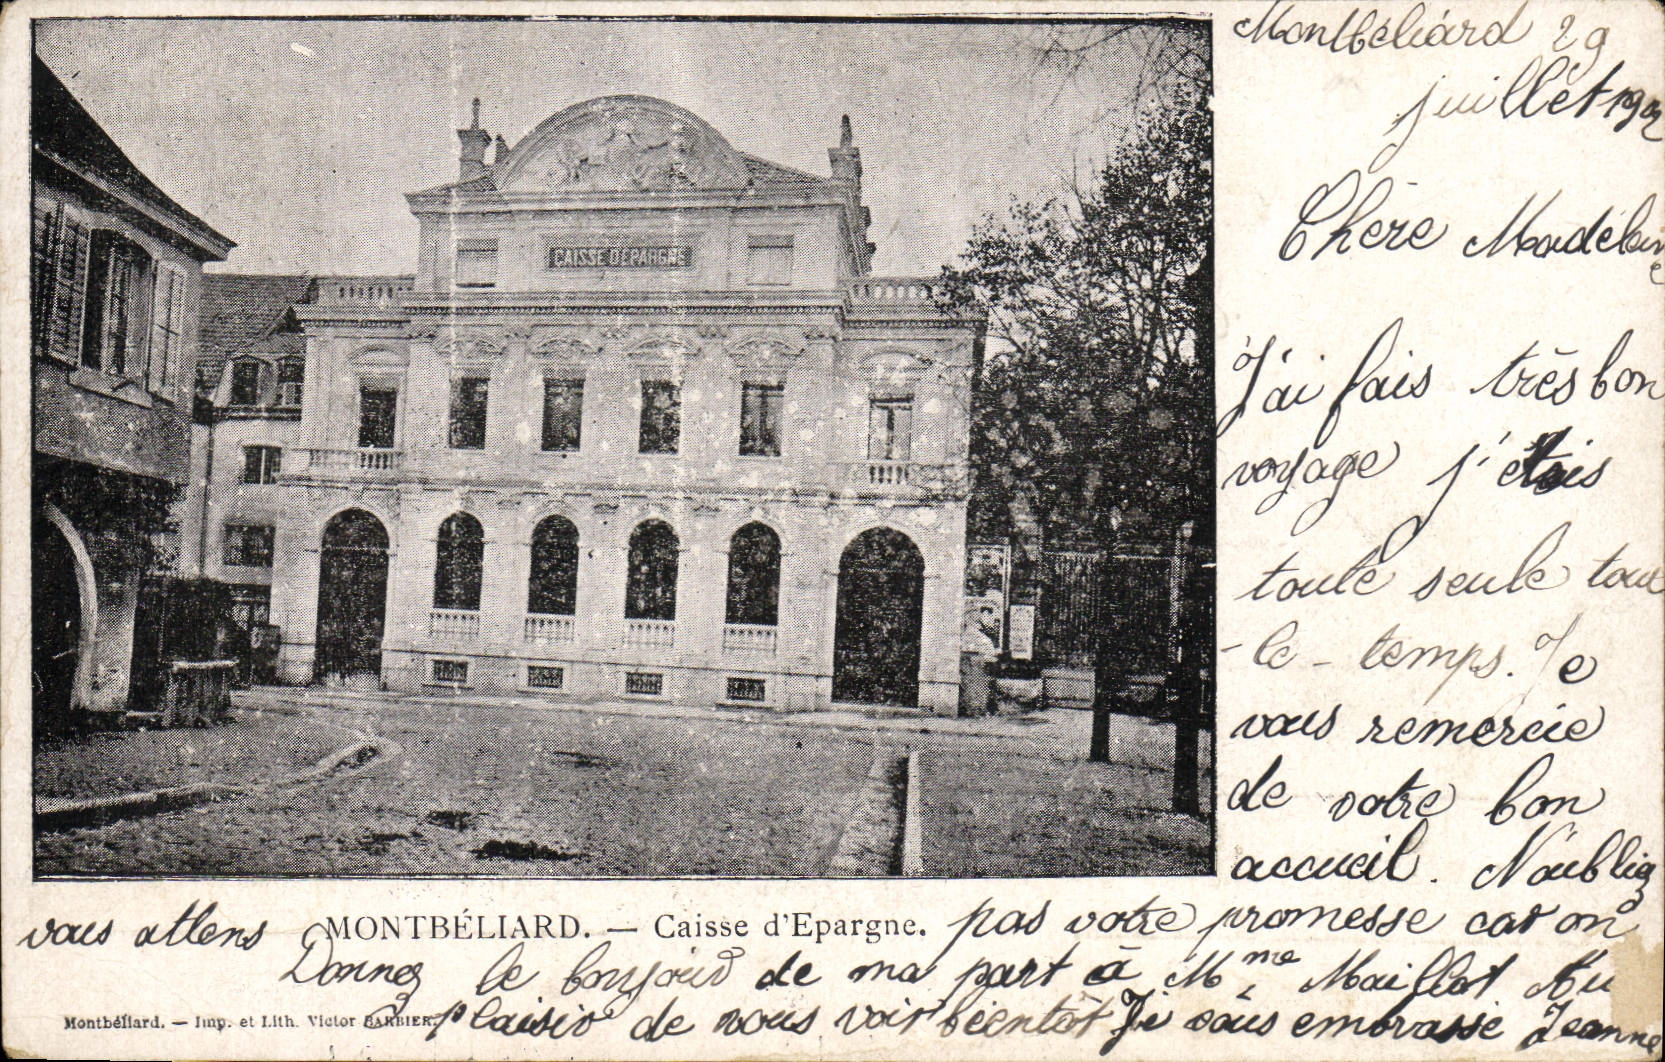 Montbéliard 29
juillet 1902
Chère Madeleine
J'ai fais très bon
voyage j'étais
toute seule tout
-le-temps. Je
vous remercie
de votre bon
accueil. N'oubliez
pas votre promesse car on
vous attens
Donnez le bonjour de ma part à Mme Maillot Au
plaisir de vous voir bientôt Je vous embrasse Jeanne
CAISSE D'EPARGNE
MONTBÉLIARD. — Caisse d'Epargne.
Montbéliard. — Imp. et Lith. Victor BARBIER.